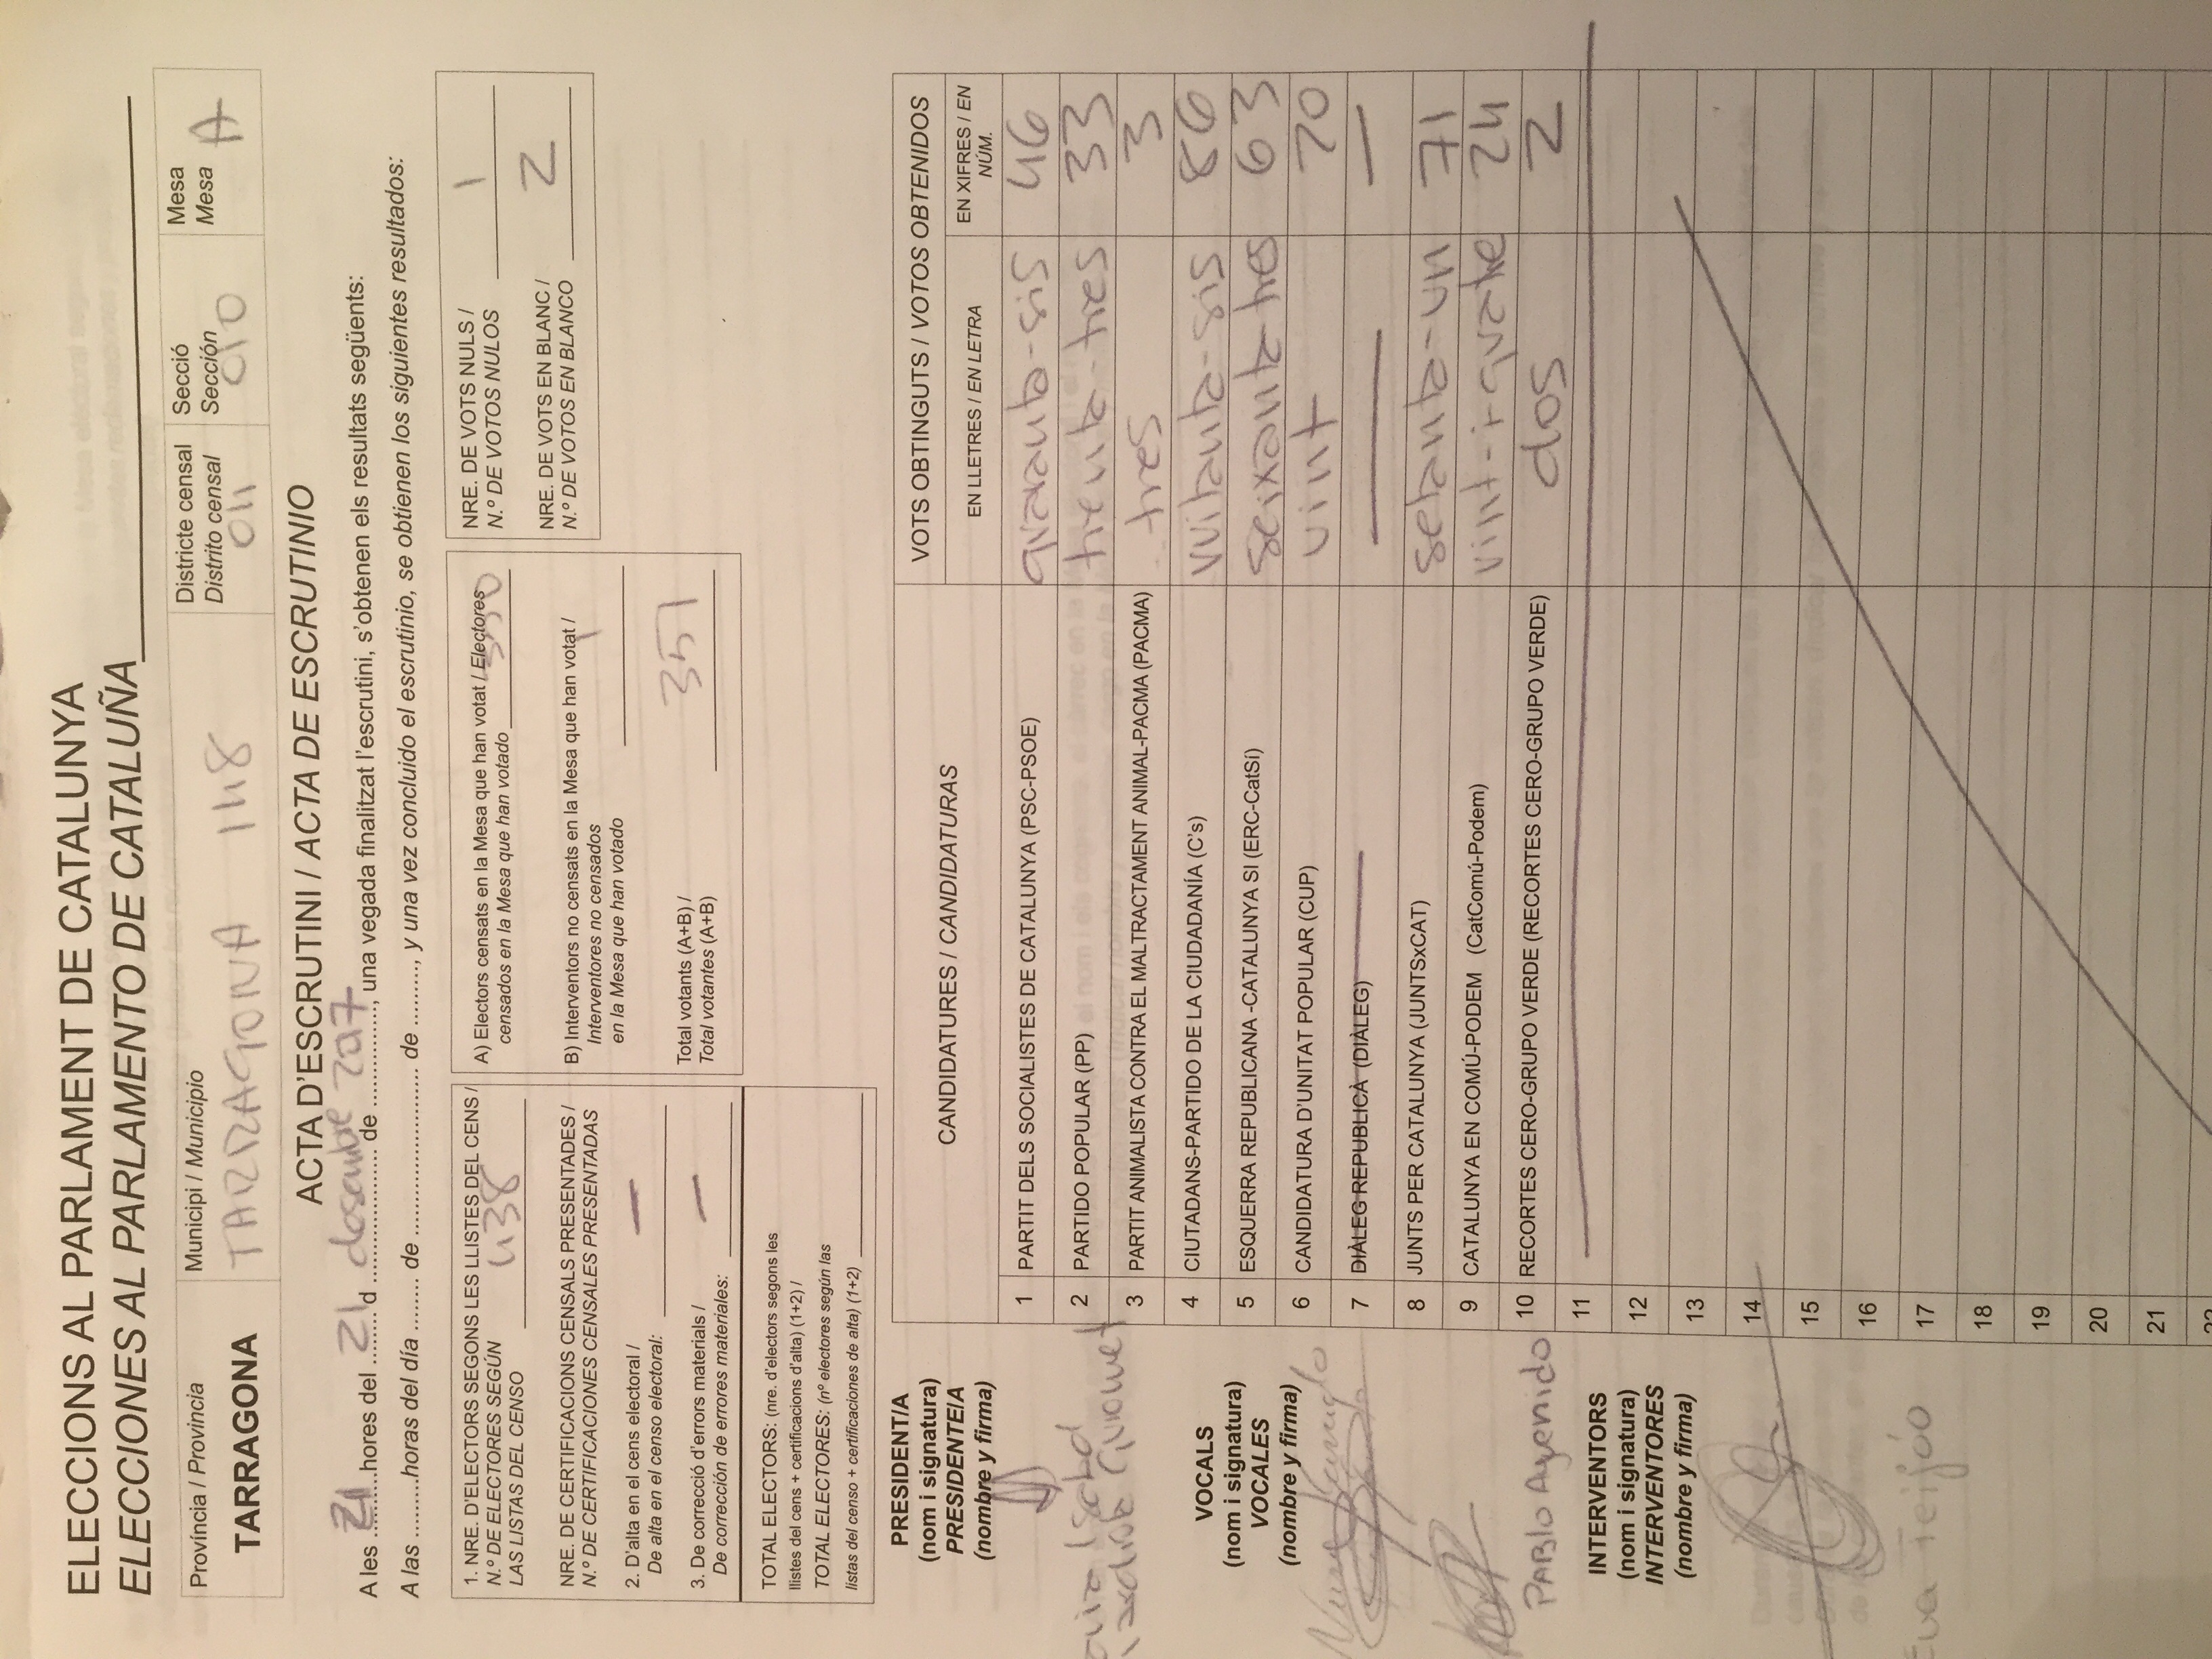 ELECCIONS AL PARLAMENT DE CATALUNYA
ELECCIONES AL PARLAMENTO DE CATALUÑA
Província / Provincia
TARRAGONA
Municipi / Municipio
TARRAGONA 148
Districte censal
Distrito censal
04
Secció
Sección
010
Mesa
Mesa A
ACTA D'ESCRUTINI / ACTA DE ESCRUTINIO
A les 21 hores del 21 d desembre de 2017, una vegada finalitzat l'escrutini, s'obtenen els resultats següents:
A las .........horas del día ........ de ........................ de ........., y una vez concluido el escrutinio, se obtienen los siguientes resultados:
1. NRE. D'ELECTORS SEGONS LES LLISTES DEL CENS /
N.º DE ELECTORES SEGÚN
LAS LISTAS DEL CENSO 438
NRE. DE CERTIFICACIONS CENSALS PRESENTADES /
N.º DE CERTIFICACIONES CENSALES PRESENTADAS
2. D'alta en el cens electoral /
De alta en el censo electoral: —
3. De correcció d'errors materials /
De corrección de errores materiales: —
TOTAL ELECTORS: (nre. d'electors segons les
llistes del cens + certificacions d'alta) (1+2) /
TOTAL ELECTORES: (nº electores según las
listas del censo + certificaciones de alta) (1+2)
A) Electors censats en la Mesa que han votat / Electores
censados en la Mesa que han votado 350
B) Interventors no censats en la Mesa que han votat /
Interventores no censados
en la Mesa que han votado 1
Total votants (A+B) /
Total votantes (A+B) 351
NRE. DE VOTS NULS /
N.º DE VOTOS NULOS 1
NRE. DE VOTS EN BLANC /
N.º DE VOTOS EN BLANCO 2
PRESIDENT/A
(nom i signatura)
PRESIDENTE/A
(nombre y firma)
Isabel
VOCALS
(nom i signatura)
VOCALES
(nombre y firma)
PABlo Ayenido
INTERVENTORS
(nom i signatura)
INTERVENTORES
(nombre y firma)
Eva Teijóo
CANDIDATURES / CANDIDATURAS
VOTS OBTINGUTS / VOTOS OBTENIDOS
EN LLETRES / EN LETRA
EN XIFRES / EN
NÚM.
1 PARTIT DELS SOCIALISTES DE CATALUNYA (PSC-PSOE) quaranta-sis 46
2 PARTIDO POPULAR (PP) trenta-tres 33
3 PARTIT ANIMALISTA CONTRA EL MALTRACTAMENT ANIMAL-PACMA (PACMA) tres 3
4 CIUTADANS-PARTIDO DE LA CIUDADANÍA (C's) vuitanta-sis 86
5 ESQUERRA REPUBLICANA -CATALUNYA SI (ERC-CatSí) seixanta tres 63
6 CANDIDATURA D'UNITAT POPULAR (CUP) vint 20
7 DIÀLEG REPUBLICÀ (DIÀLEG) — —
8 JUNTS PER CATALUNYA (JUNTSxCAT) setanta-un 71
9 CATALUNYA EN COMÚ-PODEM (CatComú-Podem) vint-i-quatre 24
10 RECORTES CERO-GRUPO VERDE (RECORTES CERO-GRUPO VERDE) dos 2
11
12
13
14
15
16
17
18
19
20
21
22